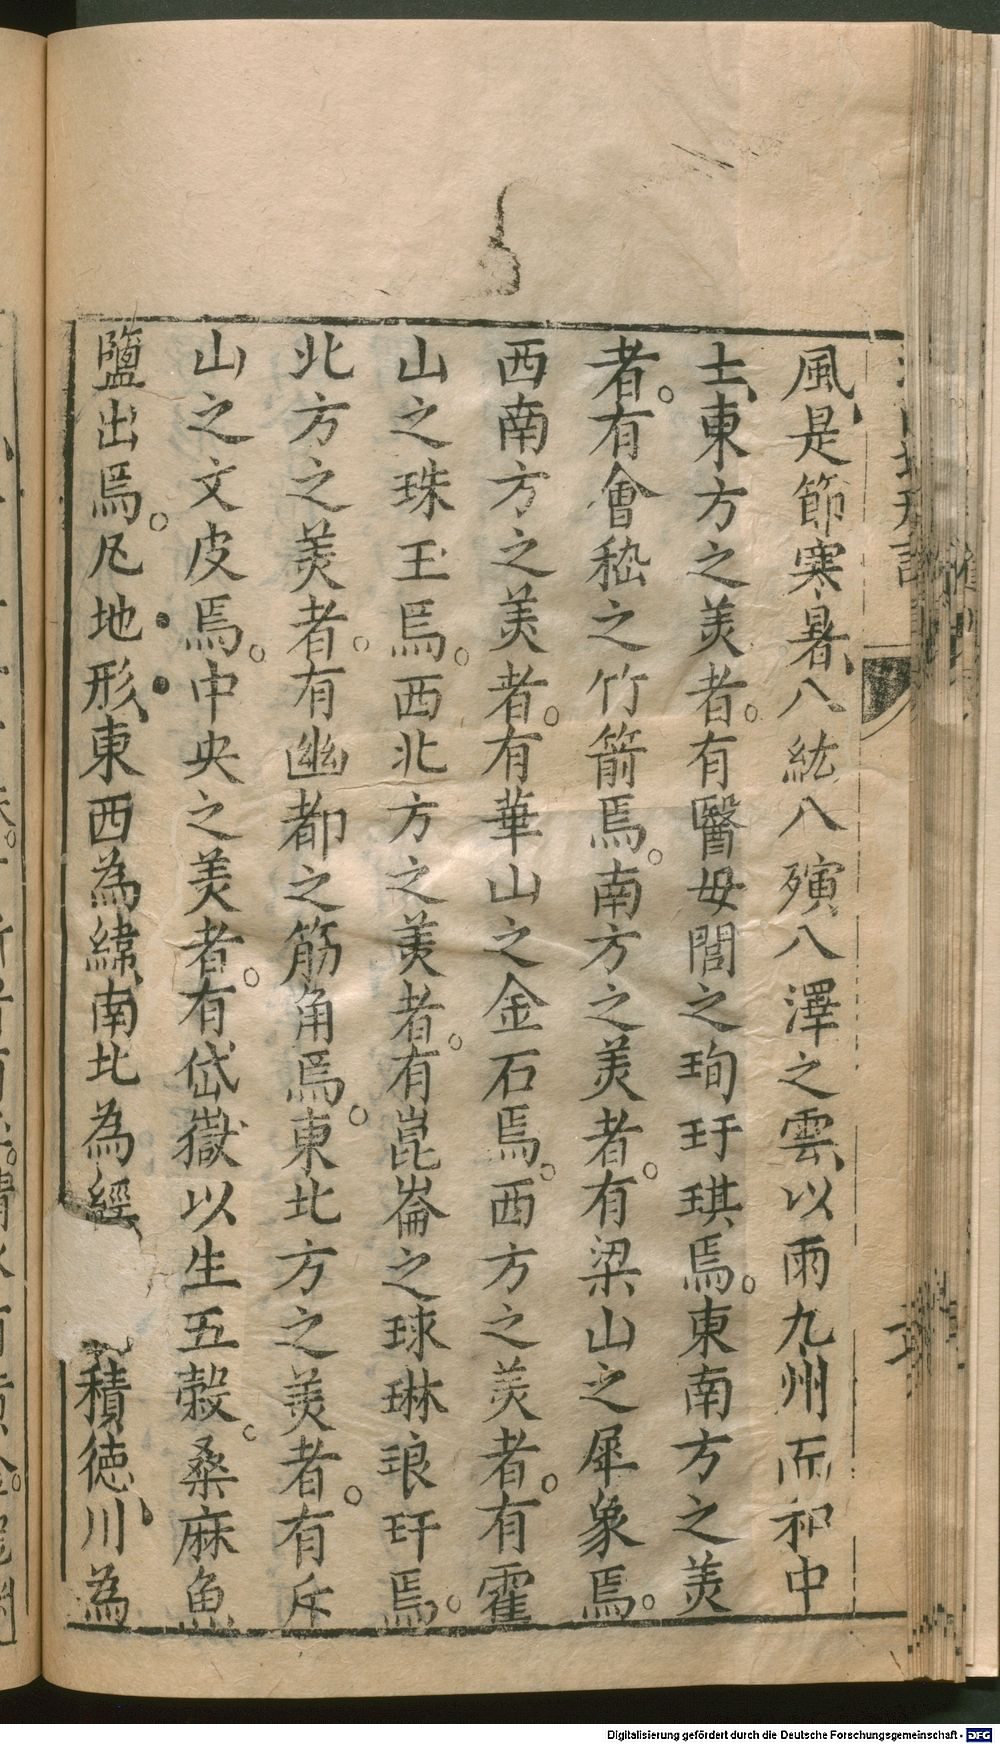 風是節寒暑八紘八殥八澤之雲以雨九州而和中
土東方之美者有醫毋閭之珣玗琪焉東南方之美
者有會嵇之竹箭焉南方之美者有梁山之犀象焉
西南方之美者有華山之金石焉西方之美者有霍
山之珠玉焉西北方之美者有崑崙之球琳琅玕焉
北方之美者有幽都之筋角焉東北方之美者有斥
山之文皮焉中央之美者有岱嶽以生五榖桑麻魚
鹽出焉凡地形東西為緯南北為經積德川為
Digitalisierung gefördert durch die Deutsche Forschungsgemeinschaft - DFG